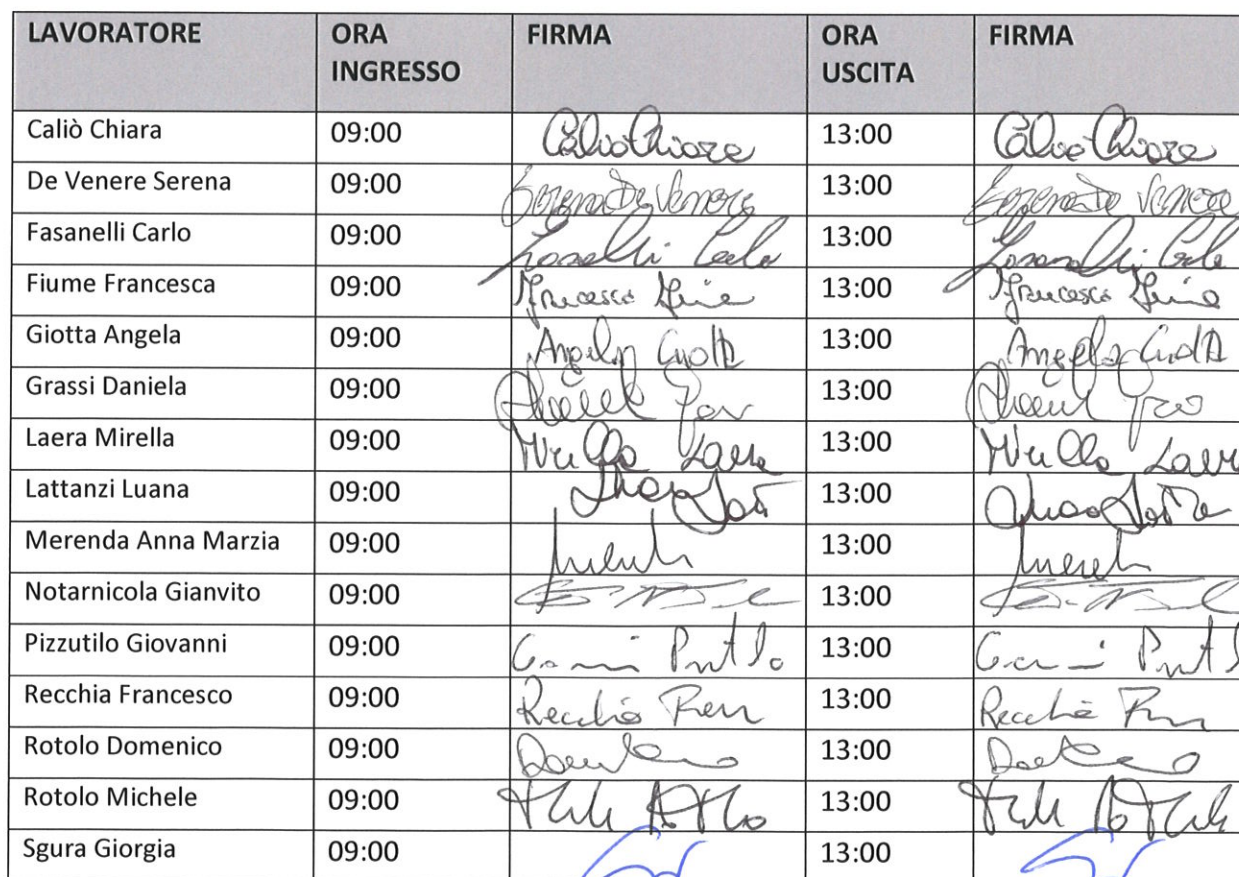 LAVORATORE ORA INGRESSO FIRMA ORA USCITA FIRMA
Caliò Chiara 09:00 Caliò Chiara 13:00 Caliò Chiara
De Venere Serena 09:00 Serena De Venere 13:00 Serena De Venere
Fasanelli Carlo 09:00 Fasanelli Carlo 13:00 Fasanelli Carlo
Fiume Francesca 09:00 Francesca Fiume 13:00 Francesca Fiume
Giotta Angela 09:00 Angela Giotta 13:00 Angela Giotta
Grassi Daniela 09:00 13:00
Laera Mirella 09:00 Mirella Laera 13:00 Mirella Laera
Lattanzi Luana 09:00 13:00
Merenda Anna Marzia 09:00 13:00
Notarnicola Gianvito 09:00 13:00
Pizzutilo Giovanni 09:00 13:00
Recchia Francesco 09:00 Recchia 13:00 Recchia
Rotolo Domenico 09:00 13:00
Rotolo Michele 09:00 13:00
Sgura Giorgia 09:00 13:00